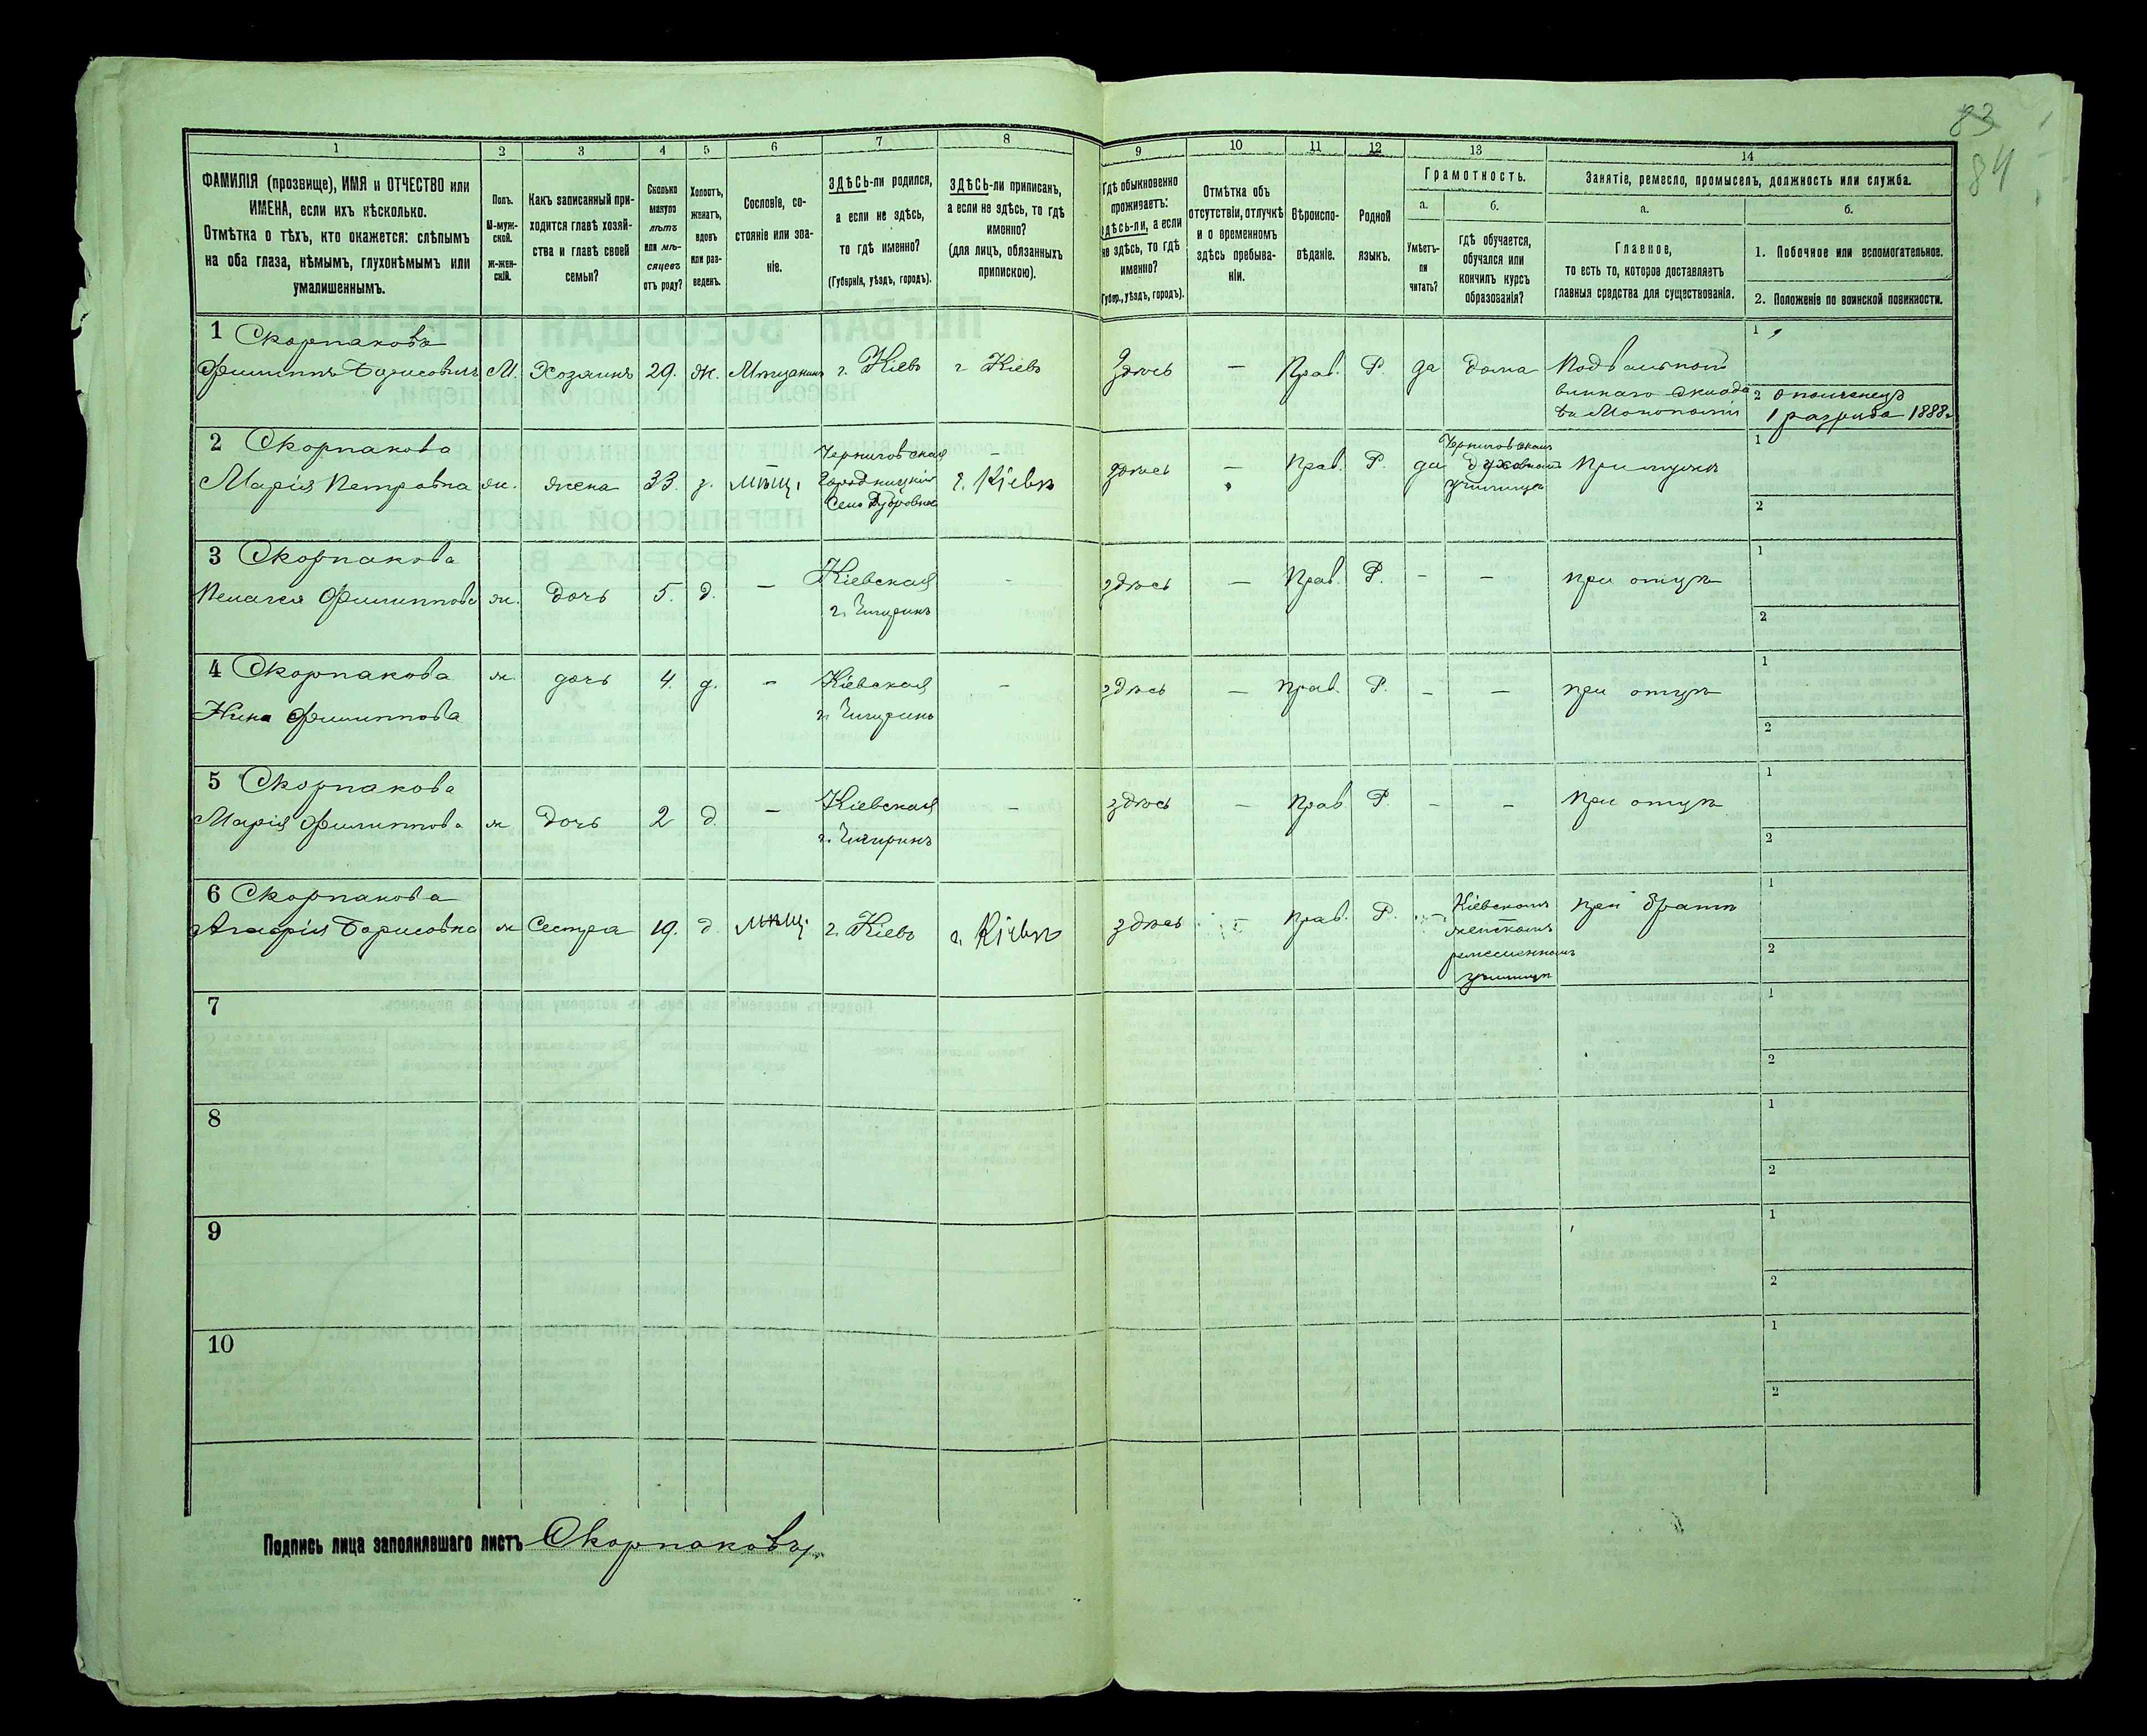 83
84
1
2
3
4
5
6
7
8
9
10
11
12
13
14
ФАМИЛІЯ (прозвище), ИМЯ и ОТЧЕСТВО или
ИМЕНА, если ихъ нѣсколько.
Отмѣтка о тѣхъ, кто окажется: слѣпымъ
на оба глаза, нѣмымъ, глухонѣмымъ или
умалишеннымъ.
Полъ.
М-муж-
ской.
Ж-жен-
скій.
Какъ записанный при-
ходится главѣ хозяй-
ства и главѣ своей
семьи?
Сколько
минуло
лѣтъ
или мѣ-
сяцевъ
отъ роду?
Холостъ,
женатъ,
вдовъ
или раз-
веденъ.
Сословіе, со-
стояніе или зва-
ніе.
ЗДѢСЬ-ли родился,
а если не здѣсь,
то гдѣ именно?
(Губернія, уѣздъ, городъ).
ЗДѢСЬ-ли приписанъ,
а если не здѣсь, то гдѣ
именно?
(для лицъ, обязанныхъ
припискою).
Гдѣ обыкновенно
проживаетъ:
здѣсь-ли, а если
не здѣсь, то гдѣ
именно?
(Губер., уѣздъ, городъ).
Отмѣтка объ
отсутствіи, отлучкѣ
и о временномъ
здѣсь пребыва-
ніи.
Вѣроиспо-
вѣданіе.
Родной
языкъ.
Грамотность.
а.
Умѣетъ-
ли
читать?
б.
гдѣ обучается,
обучался или
кончилъ курсъ
образованія?
Занятіе, ремесло, промыселъ, должность или служба.
а.
Главное,
то есть то, которое доставляетъ
главныя средства для существованія.
б.
1. Побочное или вспомогательное.
2. Положеніе по воинской повинности.
1 Скорпаковъ
Филиппъ Борисовичъ М. Хозяинъ 29. ж. Мѣщанинъ г. Кіевъ г. Кіевъ Здѣсь — Прав. Р. да дома Подвальной
виннаго склада
въ Монополіи
1
2 ополченецъ
1 разряда 1888г.
2 Скорпакова
Марія Петровна ж. жена 33. з. мѣщ. Черниговская
Городницкій
Село Дубровное
г. Кіевъ здѣсь — Прав. Р. да Черниговскомъ
Духовномъ
училищѣ
При мужѣ
1
2
3 Скорпакова
Пелагея Филиппова ж. дочь 5. д. — Кіевская
г. Чигиринъ
- здѣсь — Прав. Р. - — при отцѣ
1
2
4 Скорпакова
Нина Филиппова ж. дочь 4. д. - Кіевская
г. Чигиринъ
— здѣсь — Прав. Р. - — при отцѣ
1
2
5 Скорпакова
Марія Филиппова ж дочь 2 д. — Кіевская
г. Чигиринъ
— здѣсь — Прав. Р. - - При отцѣ
1
2
6 Скорпакова
Борисовна ж Сестра 19. д. мѣщ. г. Кіевъ г. Кіевъ здѣсь — Прав. Р. — Кіевскомъ
женскомъ
ремесленномъ
училищѣ
при братѣ
1
2
7
1
2
8
1
2
9
1
2
10
1
2
Подпись лица заполнявшаго листъ Скорпаковъ